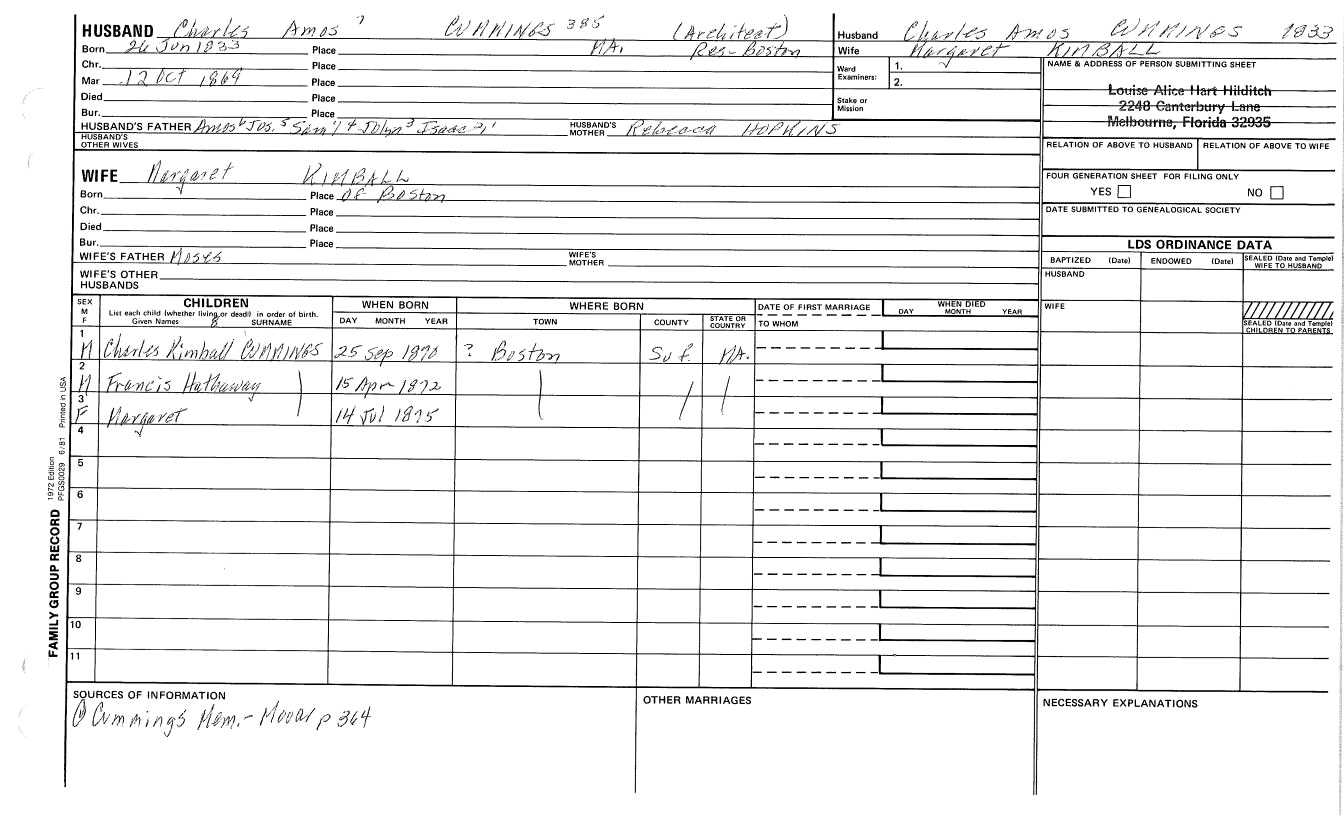 HUSBAND Charles Amos 7 CUMMINGS 385 (Architect)
Born 26 Jun 1833 Place MA. Res-Boston
Chr. Place
Mar 12 Oct 1869 Place
Died Place
Bur. Place
HUSBAND'S FATHER Amos 6 Jos. 5 Sam'l 4 John 3 Isaac 2, 1 HUSBAND'S MOTHER Rebecca HOPKINS
HUSBAND'S OTHER WIVES
WIFE Margaret KIMBALL
Born Place of Boston
Chr. Place
Died Place
Bur. Place
WIFE'S FATHER Moses WIFE'S MOTHER
WIFE'S OTHER HUSBANDS
Husband Charles Amos CUMMINGS 1833
Wife Margaret KIMBALL
Ward Examiners: 1.
2.
Stake or Mission
NAME & ADDRESS OF PERSON SUBMITTING SHEET
Louise Alice Hart Hilditch
2248 Canterbury Lane
Melbourne, Florida 32935
RELATION OF ABOVE TO HUSBAND RELATION OF ABOVE TO WIFE
FOUR GENERATION SHEET FOR FILING ONLY
YES NO
DATE SUBMITTED TO GENEALOGICAL SOCIETY
LDS ORDINANCE DATA
BAPTIZED (Date) ENDOWED (Date) SEALED (Date and Temple) WIFE TO HUSBAND
HUSBAND
WIFE
SEALED (Date and Temple) CHILDREN TO PARENTS
SEX M F
CHILDREN
List each child (whether living or dead) in order of birth.
Given Names 8 SURNAME
WHEN BORN
DAY MONTH YEAR
WHERE BORN
TOWN COUNTY STATE OR COUNTRY
DATE OF FIRST MARRIAGE
TO WHOM
WHEN DIED
DAY MONTH YEAR
1 M Charles Kimball CUMMINGS 25 Sep 1870 ? Boston Suf. MA.
2 M Francis Hathaway 15 Apr 1872
3 F Margaret 14 Jul 1875
4
5
6
7
8
9
10
11
FAMILY GROUP RECORD 1972 Edition PFGS0029 6/81 Printed in USA
SOURCES OF INFORMATION
① Cummings Mem. - Mooar p 364
OTHER MARRIAGES
NECESSARY EXPLANATIONS